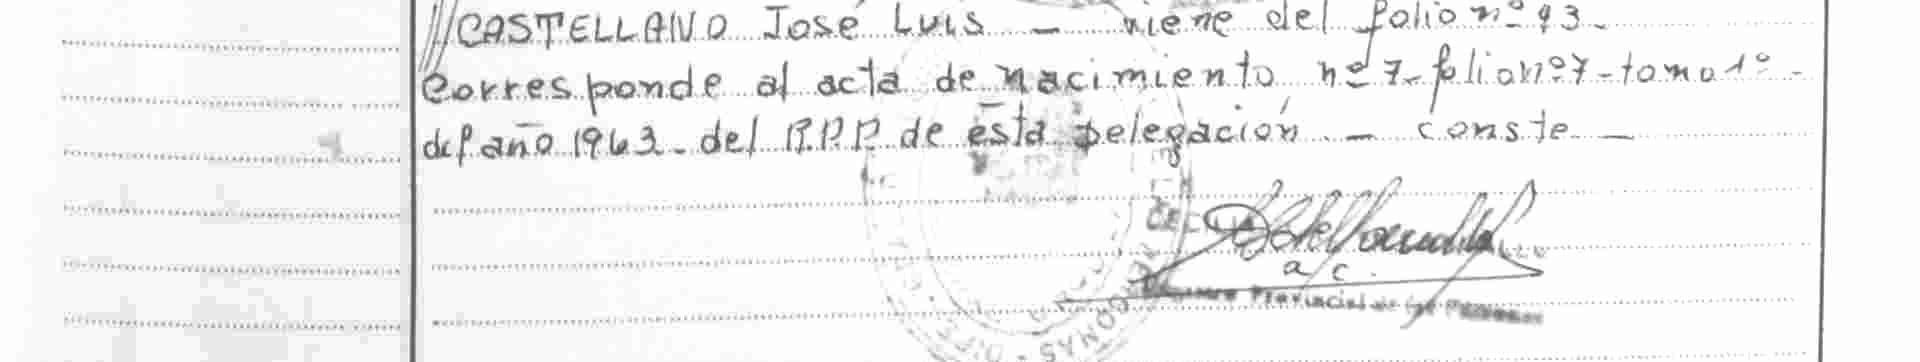 //CASTELLANO José Luis — viene del folio nº 93-
Corresponde al acta de nacimiento nº 7- folio nº 7- tomo 1º -
del año 1963- del R.P.P. de ésta Delegación - conste —
CECILIA
a/c.
Provincial de las Personas
LOMAS